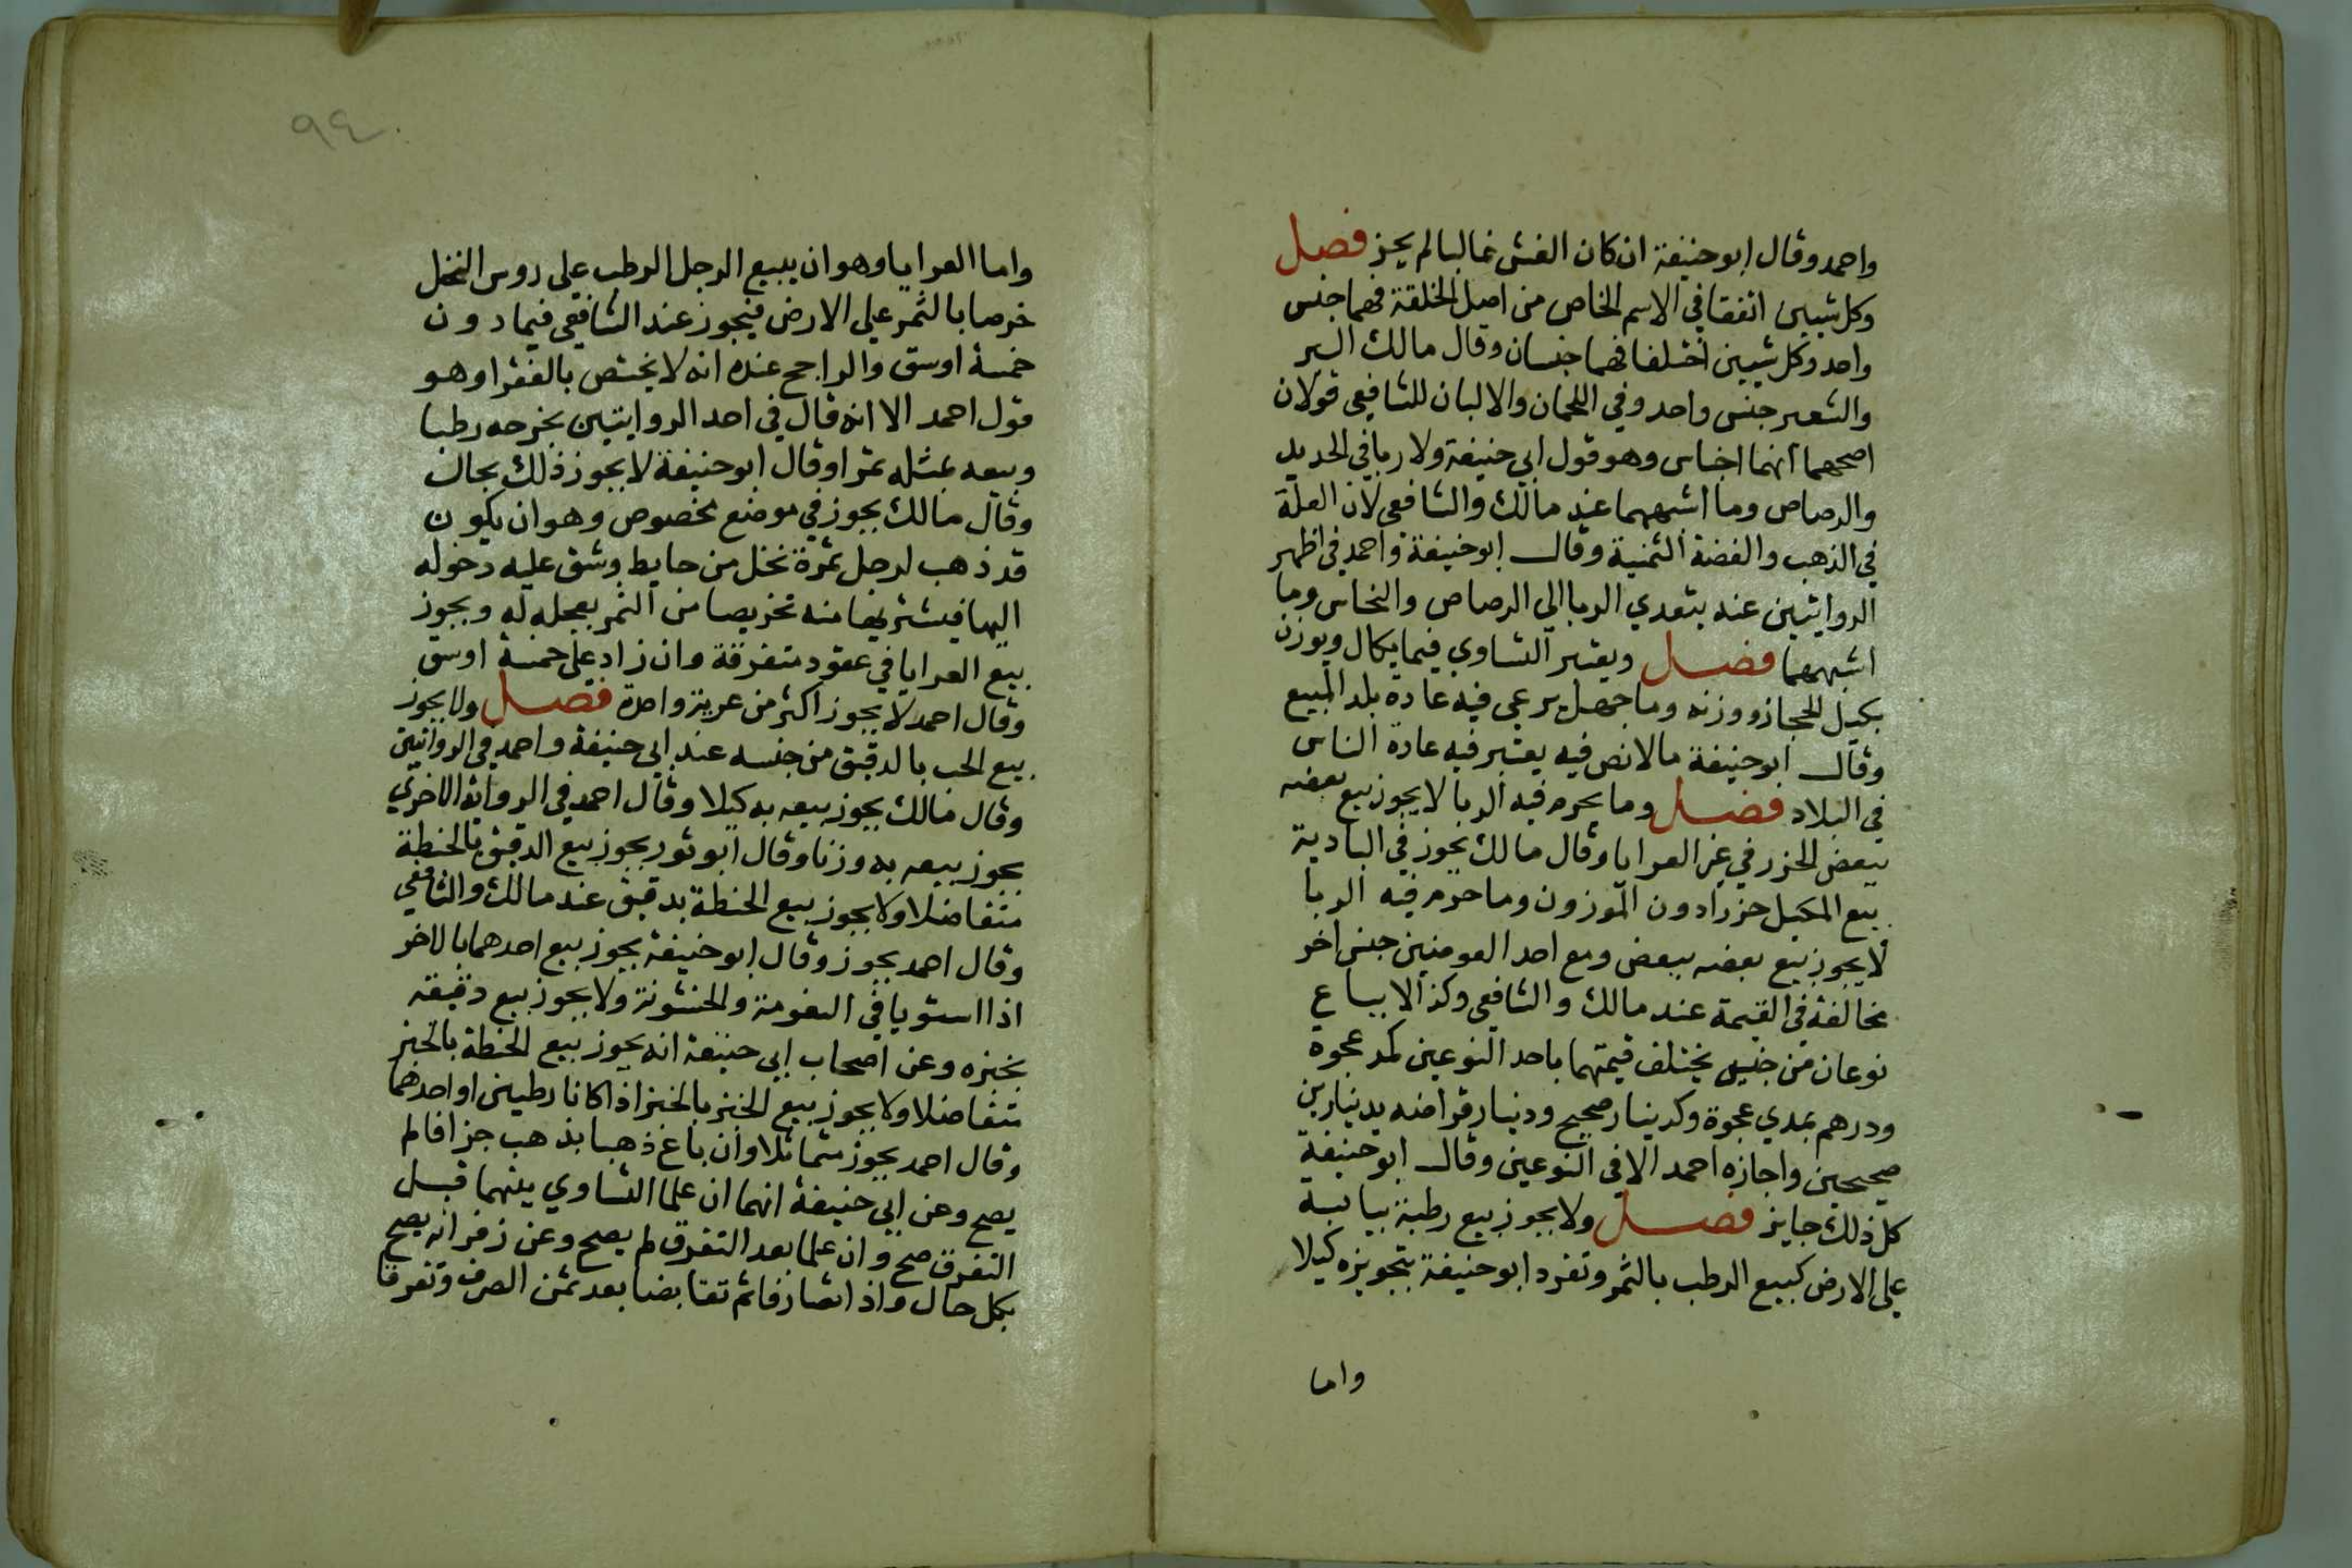 واحمد وقال ابو حنيفة ان كان الغش غالبا لم يجز فصل
وكل شيين اتفقا في الاسم الخاص من اصل الخلقة فهما جنس
واحد وكل شيين اختلفا فهما جنسان وقال مالك البر
والشعير جنس واحد وفي اللحمان والالبان للشافعي قولان
اصحهما انهما اجناس وهو قول ابي حنيفة ولا ربا في الحديد
والرصاص وما اشبههما عند مالك والشافعي لان العلة
في الذهب والفضة الثمنية وقال ابو حنيفة واحمد في اظهر
الروايتين عنه يتعدي الربا الي الرصاص والنحاس وما
اشبههما فصل ويعتبر التساوي فيما يكال ويوزن
بكيل الحجاز ووزنه وما جهل يرعي فيه عادة بلد المبيع
وقال ابو حنيفة مالا نص فيه يعتبر فيه عادة الناس
في البلاد فصل وما يحرم فيه الربا لا يجوز بيع بعضه
ببعض الحزر في غير العرايا وقال مالك يجوز في البادية
بيع المكيل حزرا دون الموزون وما حرم فيه الربا
لا يجوز بيع بعضه ببعض ومع احد العوضين جنس اخر
مخالفة في القيمة عند مالك والشافعي وكذا لا يباع
نوعان من جنس يختلف قيمتهما باحد النوعين كمد عجوة
ودرهم بمدي عجوة وكدينار صحيح ودينار قراضه بدينارين
صحيحين واجازه احمد الا في النوعين وقال ابو حنيفة
كل ذلك جايز فصل ولا يجوز بيع رطبة بيابسة
علي الارض كبيع الرطب بالثمر وتفرد ابو حنيفة بتجويزه كيلا
واما
٩٤
واما العرايا وهو ان يبيع الرجل الرطب علي روس النخل
خرصا بالثمر علي الارض فيجوز عند الشافعي فيما دون
خمسة اوسق والراجح عنده انه لا يختص بالفقرا وهو
قول احمد الا انه قال في احد الروايتين بخرصه رطبا
وبيعه بمثله تمرا وقال ابو حنيفة لا يجوز ذلك بحال
وقال مالك يجوز في موضع مخصوص وهو ان يكون
قد ذهب لرجل ثمرة نخل من حايط وشق عليه دخوله
اليها فيشتريها منه تخريصا من الثمر بعجله له ويجوز
بيع العرايا في عقود متفرقة وان زاد علي خمسة اوسق
وقال احمد لا يجوز اكثر من عرية واحدة فصل ولا يجوز
بيع الحب بالدقيق من جنسه عند ابي حنيفة واحمد في الروايتين
وقال مالك يجوز بيعه به كيلا وقال احمد في الرواية الاخري
يجوز بيعه به وزنا وقال ابو ثور يجوز بيع الدقيق بالحنطة
متفاضلا ولا يجوز بيع الحنطة بدقيق عند مالك والشافعي
وقال احمد يجوز وقال ابو حنيفة يجوز بيع احدهما بالاخر
اذا استويا في النعومة والخشونة ولا يجوز بيع دقيقه
بخبزه وعن اصحاب ابي حنيفة انه يجوز بيع الحنطة بالخبز
متفاضلا ولا يجوز بيع الخبز بالخبز اذا كانا رطبين او احدهما
وقال احمد يجوز متماثلا وان باع ذهبا بذهب جزافا لم
يصح وعن ابي حنيفة انهما ان علما التساوي بينهما قبل
التفرق صح وان علما بعد التفرق لم يصح وعن زفر انه يصح
بكل حال واذا تصارفا ثم تقابضا بعد ثمن الصرف وتفرقا